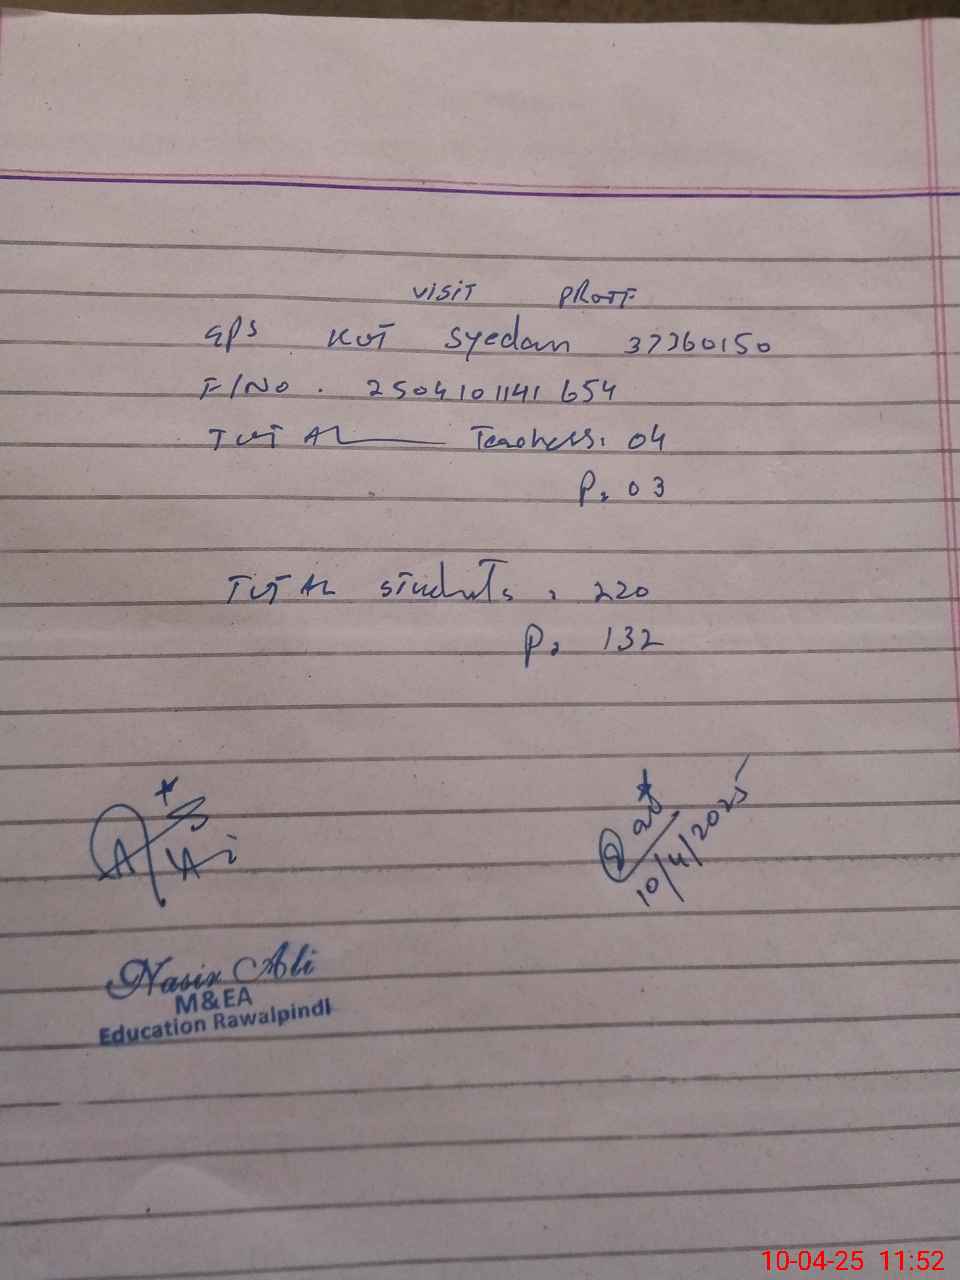 VISIT PROFF
GPS KOT Syedan 37360150
F/No. 2504101141654
TOTAL Teachers: 04
P: 03
TOTAL students: 220
P: 132
10/4/2025
Nasir Ali
M&EA
Education Rawalpindi
10-04-25 11:52